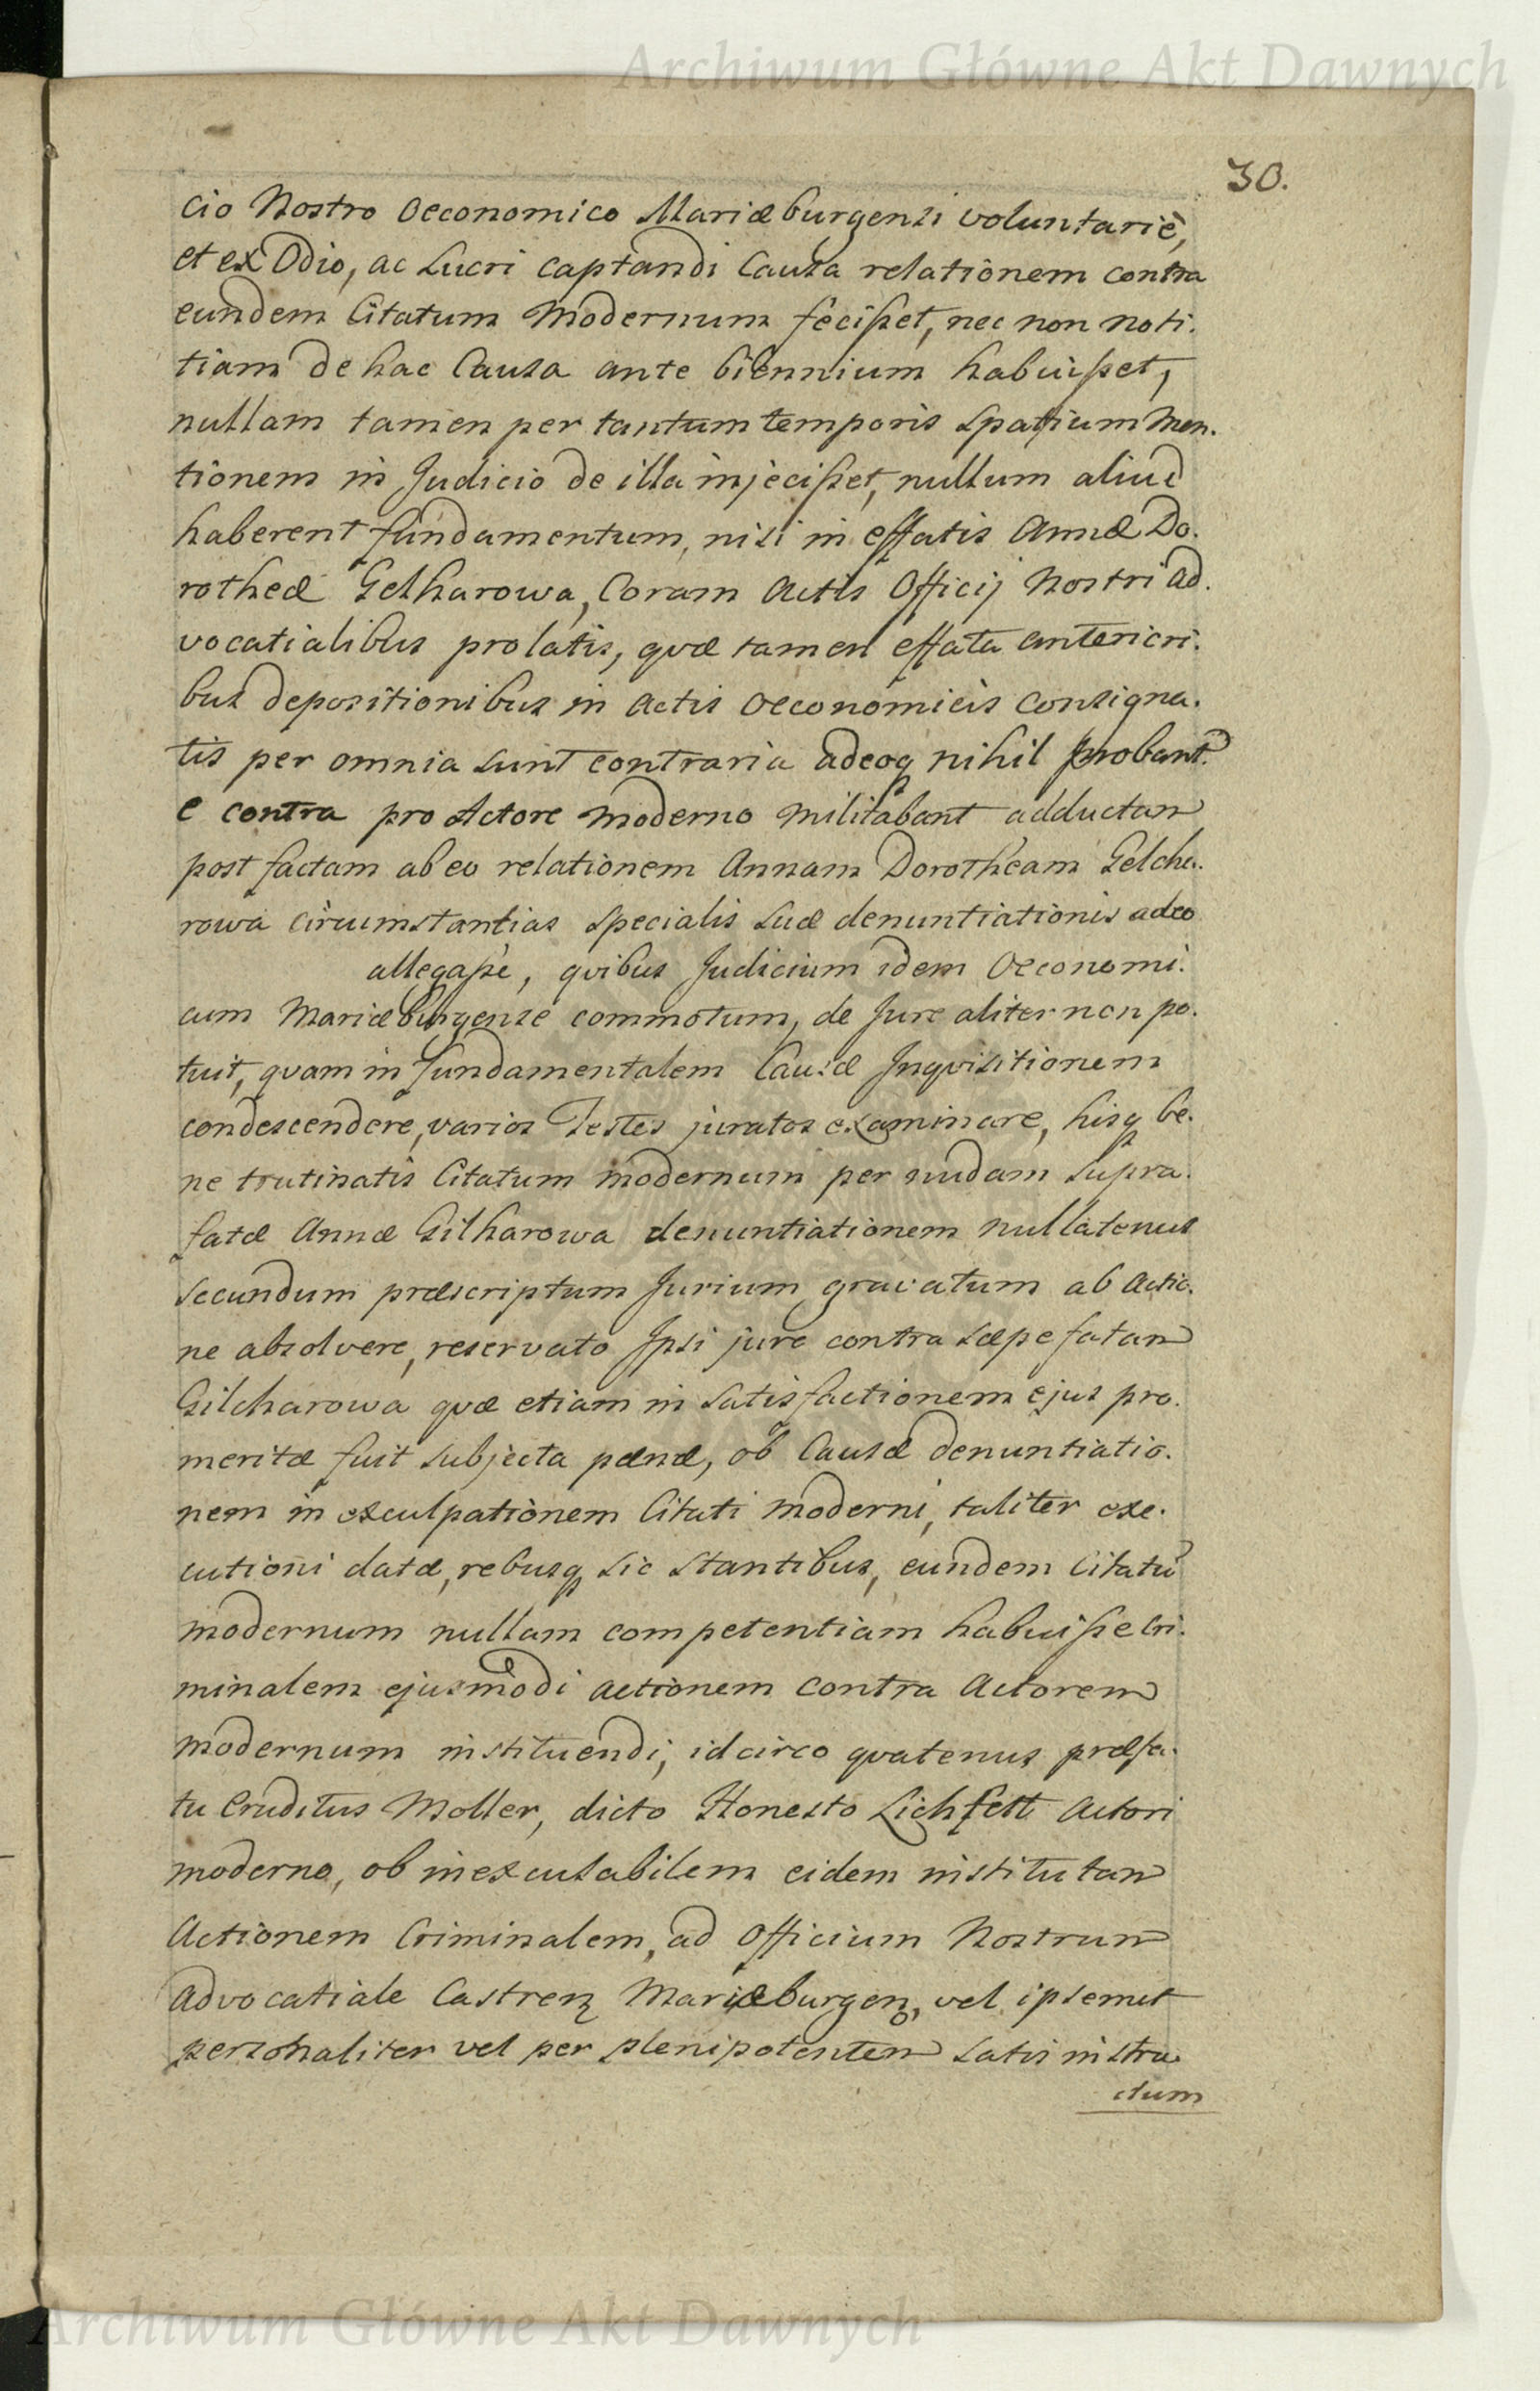 Archiwum Główne Akt Dawnych
30.
cio Nostro Oeconomico Mariæburgensi voluntariè,
et ex Odio, ac Lucri captandi Causa relationem contra
eundem Citatum Modernum feciſset, nec non noti.
tiam de hac Causa ante biennium habuiſset,
nullam tamen per tantum temporis spatium men.
tionem in Judicio de illa injeciſset, nullum aliud
haberent fundamentum, nisi in effatis Annæ Do.
rotheæ Gelharowa, Coram Actis Officij Nostri ad.
vocatialibus prolatis, quæ tamen effata anteriori.
bus depositionibus in actis Oeconomicis Consigna.
tis per omnia sunt contraria adeoq nihil probant.
e contra pro Actore moderno militabant adductam
post factam ab eo relationem Annam Dorotheam Gelcha.
rowa circumstantias specialis suæ denuntiationis adeo
allegaſse, quibus Judicium idem Oeconomi.
cum Mariæburgense commotum, de Jure aliter non po.
tuit, quam in fundamentalem Causæ Inquisitionem
condescendere, varios Testes juratos examinare, hisq be.
ne trutinatis Citatum modernum per nudam supra.
fatæ Annæ Gilharowa denuntiationem nullatenus
secundum præscriptum Jurium gravatum ab actio.
ne absolvere, reservato Ipsi jure contra sæpefatam
Gilcharowa quæ etiam in satisfactionem ejus pro.
meritæ fuit subjecta pænæ, ob Causæ denuntiatio.
nem in exculpationem Citati moderni, taliter exe.
cutioni datæ, rebusq sic stantibus, eundem Citatū
modernum nullam competentiam habuiſse Cri.
minalem ejusmodi actionem contra Actorem
modernum instituendi, idcirco quatenus præfa.
tu Eruditus Moller, dicto Honesto Lichfett Actori
moderno, ob inexcusabilem eidem institutam
Actionem Criminalem, ad Officium Nostrum
advocatiale Castren Mariæburgen, vel ipsemet
personaliter vel per plenipotentem satis instru
ctum
Archiwum Główne Akt Dawnych